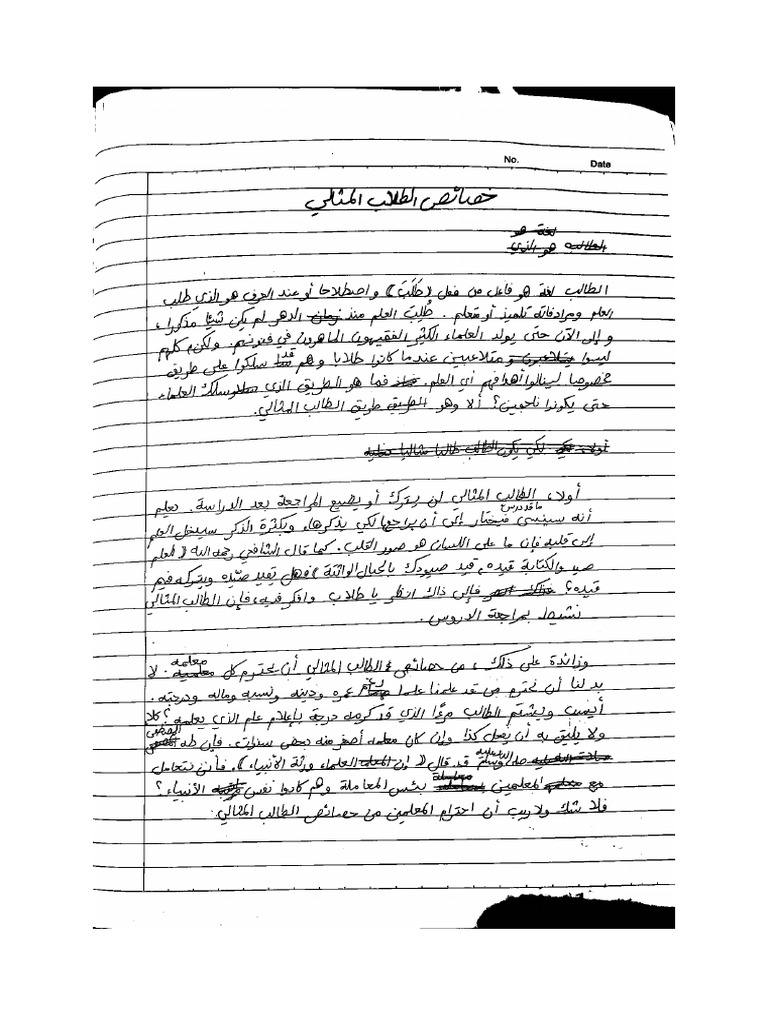 No. Date
خصائص الطلاب المثالي
لغة هو
الطالب هو الذي
الطالب لغة هو فاعل من فعل (طَلَبَ) واصطلاحا أو عند العرف هو الذي طلب
العلم ومرادفاته تلميذ أو متعلم. طُلِبَ العلم منذ زمان الدهر لم يكن شيئا مذكورا،
وإلى الآن حتى يولد العلماء الكثير الفقيهون الماهرون في فنونهم. ولكن، كلهم
ليسوا متلاعبين عندما كانوا طلابا وهم قد سلكوا على طريق
مخصوصا لينالوا أهدافهم أي العلم. فما هو الطريق الذي سلك العلماء
حتى يكونوا ناجحين؟ ألا وهو الطريق طريق الطالب المثالي.
أولا، لكي يكون الطالب طالبا مثاليا
أولا، الطالب المثالي لن يترك أو يضيع المراجعة بعد الدراسة. يعلم
أنه سينسى ما قد درس فيحتار إلى أن يراجعها لكي يذكرها، وبكثرة الذكر سيدخل العلم
إلى قلبه فإن ما على اللسان هو صور القلب. كما قال الشافعي رحمه الله (العلم
صيد والكتابة قيده، قيد صيودك بالحبال الواثقة) فهل تقيد صيده ويتركه فهم
قيده؟ فإلى ذاك انظر يا طلاب وافكر فيه، فإن الطالب المثالي
نشيط بمراجعة الدروس.
وزائدة على ذلك، من خصائص الطالب المثالي أن يحترم كل معلمه. لا
بد لنا أن نحترم من قد علمنا علما رغم عمره ودينه ونسبه وماله ودرجته.
أيضرب ويشتم الطالب مرءا الذي قد كرمه درجة بإعلام علم الذي يعلمه؟ كلا
ولا يليق به أن يفعل كذا وإن كان معلمه أصغر منه بعض سنوات. فإن طه المصطفى
صلى الله عليه وسلم قد قال (إن العلماء ورثة الأنبياء). فأنى نتعامل
مع المعلمين معاملة بئس المعاملة وهم كانوا نفس الأنبياء؟
فلا شك ولا ريب أن احترام المعلمين من خصائص الطالب المثالي.